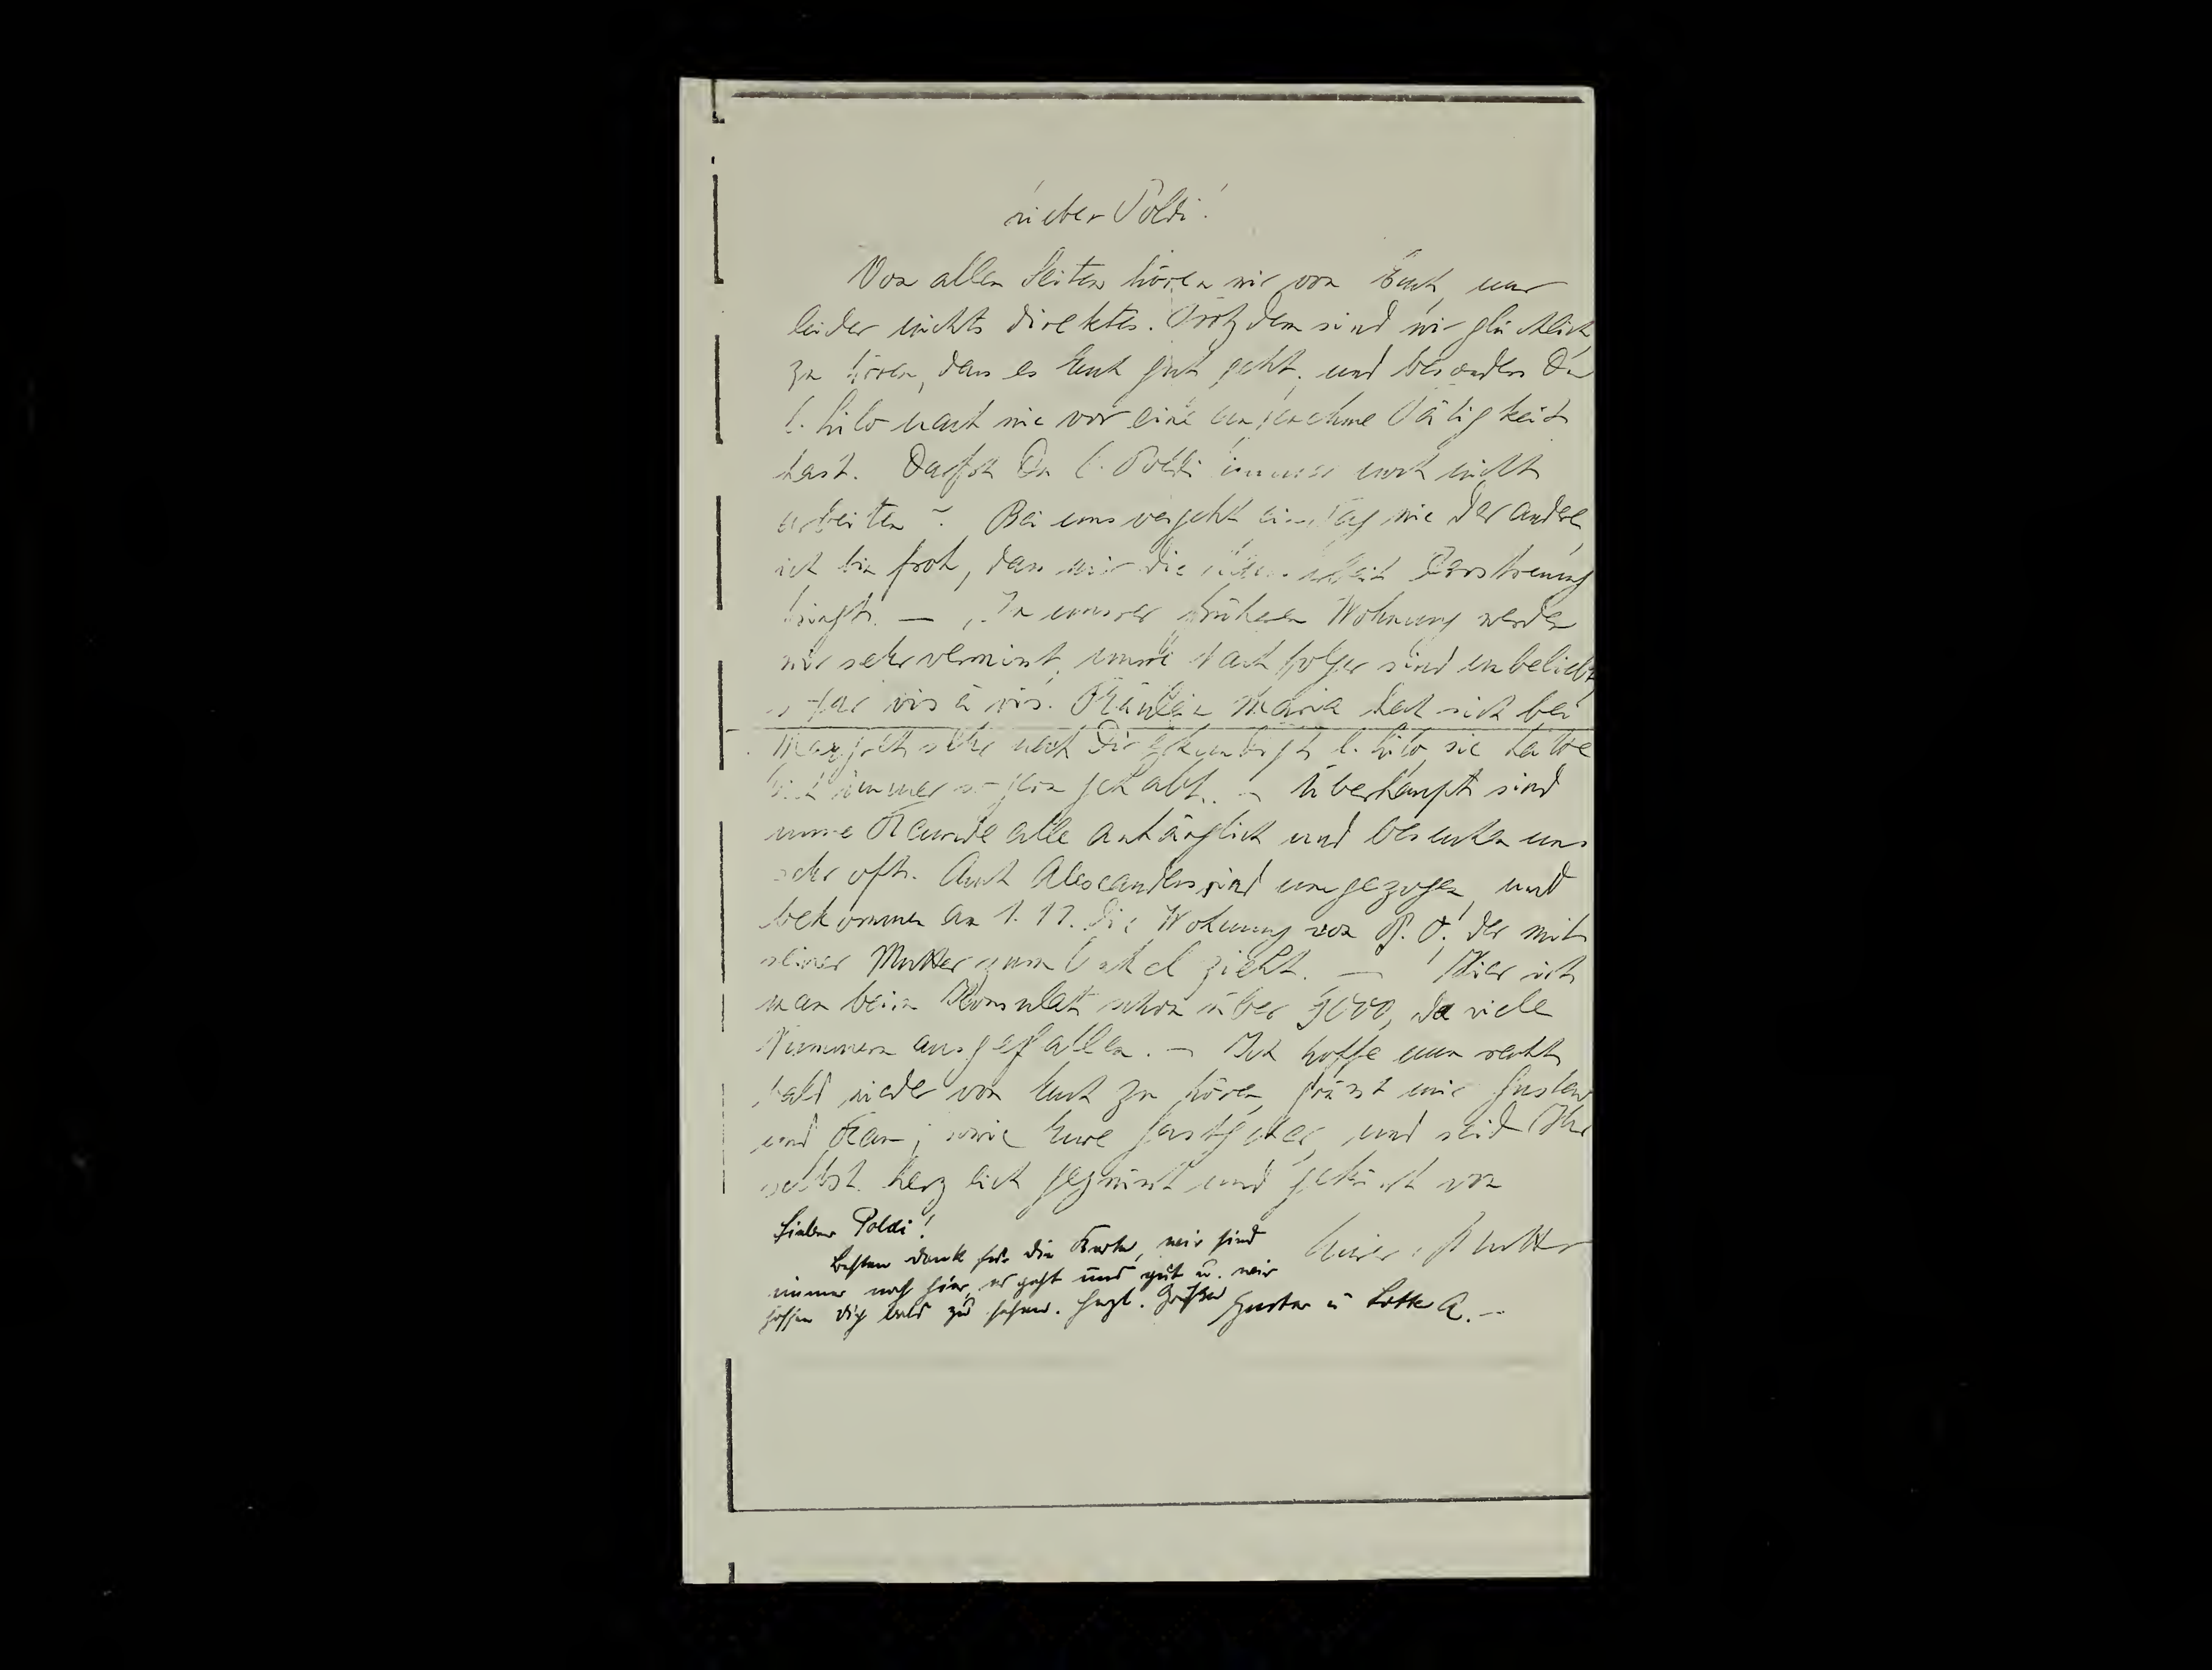 Lieber Poldi!
Von allen Seiten hören wir von Euch, nur
leider nichts direktes. Trotzdem sind wir glücklich
zu hören, dass es Euch gut geht, und besonders Du
l. Lilo nach wie vor eine angenehme Tätigkeit
hast. Darfst Du l. Poldi immer noch nicht
arbeiten? Bei uns vergeht ein Tag wie der andere,
ich bin froh, dass mir die Zerstreuung
bringt. — In unserer früheren Wohnung werden
wir sehr vermisst, unsre Nachfolger sind unbeliebt,
sogar vis à vis. Fräulein Maria hat sich bei
sehr nach Dir erkundigt l. Lilo, sie habe
Dich immer so gern gehabt. — Überhaupt sind
unsre Freunde alle anhänglich und besuchen uns
sehr oft. Auch Alexanders sind umgezogen, und
bekommen am 1. 11. die Wohnung von P. O., der mit
seiner Mutter zum Onkel zieht. — Hier ist
man beim Konsulat schon über, da viele
Nummern ausgefallen. — Ich hoffe nun recht
bald wieder von Euch zu hören, grüsst mir Gustav
und Frau, sowie Eure Gastgeber, und seid Ihr
selbst herzlich gegrüsst und geküsst von
Eurer Mutter
Lieber Poldi!
Besten Dank für die Karte, wir sind
immer noch hier, es geht uns gut u. wir
hoffen Dich bald zu sehen. Herzl. Grüße
Gustav u Lotte A. —